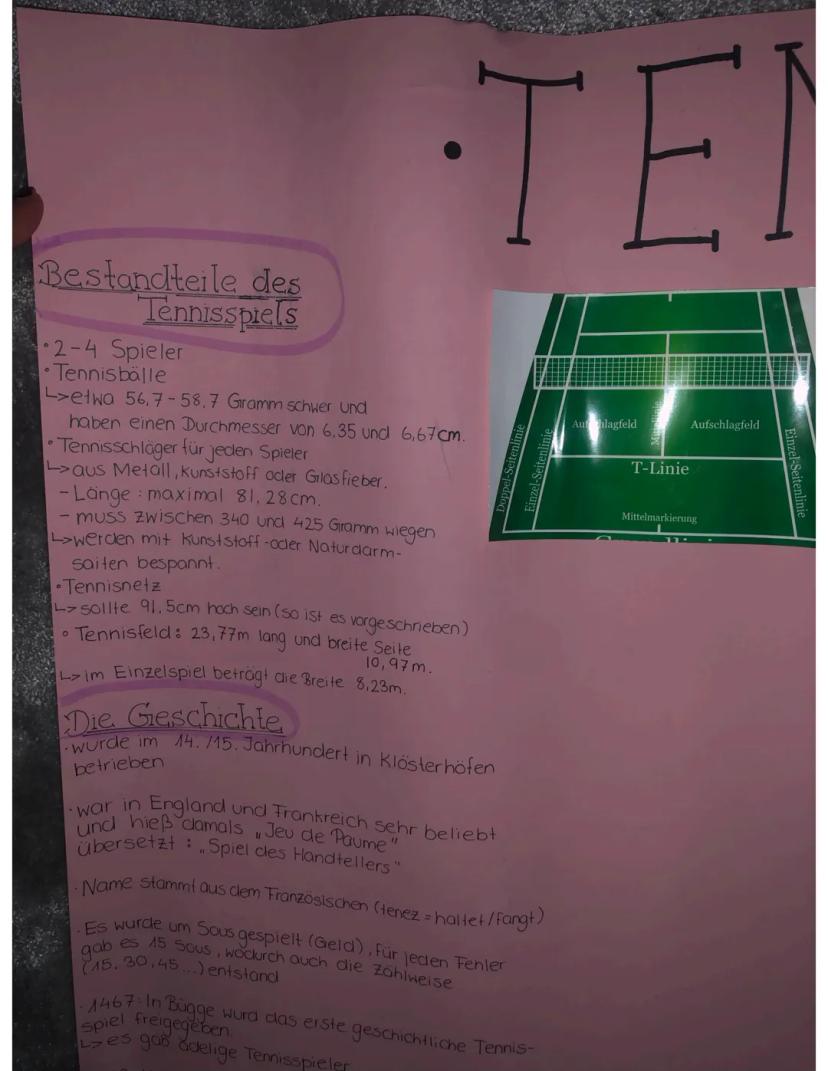 • TEN
Bestandteile des
Tennisspiels
• 2-4 Spieler
• Tennisbälle
↳ etwa 56,7 - 58,7 Gramm schwer und
haben einen Durchmesser von 6,35 und 6,67cm.
• Tennisschläger für jeden Spieler
↳ aus Metall, Kunststoff oder Glasfieber.
- Länge: maximal 81,28cm.
- muss zwischen 340 und 425 Gramm wiegen
↳ werden mit Kunststoff- oder Naturdarm-
saiten bespannt.
• Tennisnetz
↳ sollte 91,5cm hoch sein (so ist es vorgeschrieben)
• Tennisfeld: 23,77m lang und breite Seite
10,97m.
↳ im Einzelspiel beträgt die Breite 8,23m.
Die Geschichte
• wurde im 14./15. Jahrhundert in Klösterhöfen
betrieben
• war in England und Frankreich sehr beliebt
und hieß damals „Jeu de Paume"
übersetzt: „Spiel des Handtellers"
• Name stammt aus dem Französischen (tenez = haltet/fangt)
• Es wurde um Sous gespielt (Geld), für jeden Fehler
gab es 15 Sous, wodurch auch die Zählweise
(15, 30, 45...) entstand
• 1467: In Bügge wurd das erste geschichtliche Tennis-
spiel freigegeben.
↳ es gab adelige Tennisspieler
Aufschlagfeld
Aufschlagfeld
Doppel-Seitenlinie
Einzel-Seitenlinie
Einzel-Seitenlinie
T-Linie
Mittelmarkierung